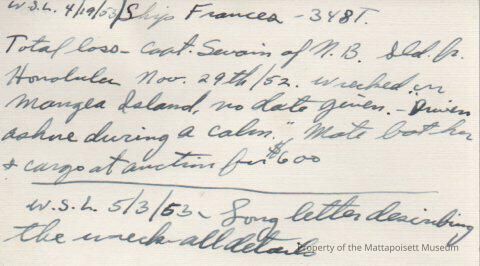 W.S.L. 4/19/53/Ship Frances - 348T.
Total loss - Capt. Swain of N.B. Sld. fr.
Honolulu Nov. 29th/52. wrecked on
Mangea Island, no date given. - "Driven
ashore during a calm." Mate bot her
& cargo at auction for $600
W.S.L. 5/3/53 - Long letter describing
the wreck - all details
Property of the Mattapoisett Museum